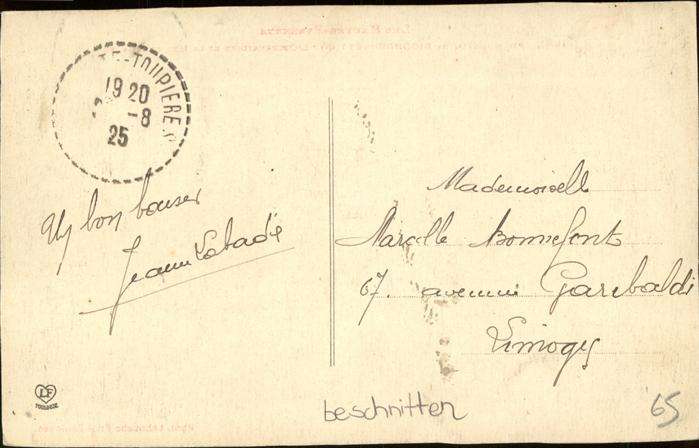 TE-TOUPIERE
19 20
-8
25
Un bon baiser
Jeanne Labadie
Mademoiselle
Marcelle Bonnefont
67. avenue Garibaldi
Limoges
LF
TOULOUSE
beschnitten
65